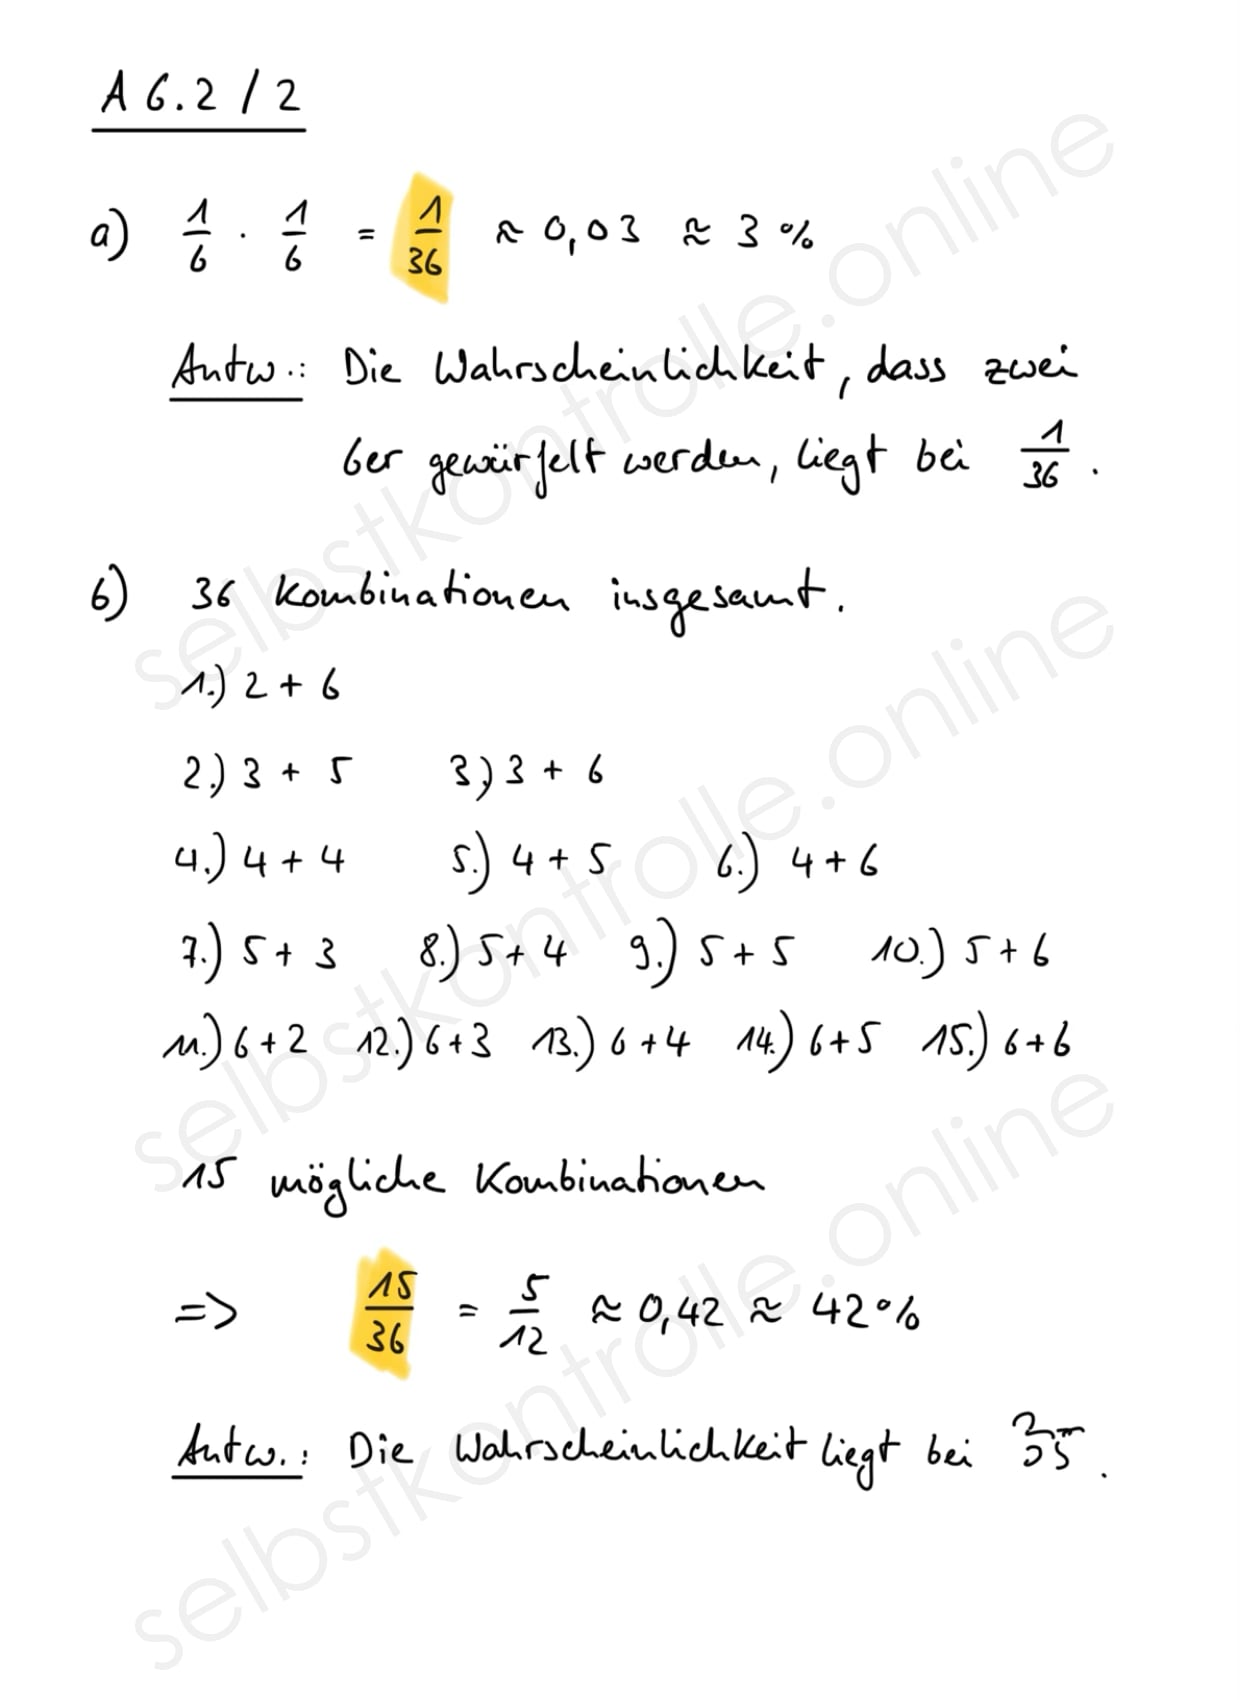 A 6.2 / 2
a) 1/6 · 1/6 = 1/36 ≈ 0,03 ≈ 3 %
Antw.: Die Wahrscheinlichkeit, dass zwei
6er gewürfelt werden, liegt bei 1/36.
b) 36 Kombinationen insgesamt.
1.) 2 + 6
2.) 3 + 5 3.) 3 + 6
4.) 4 + 4 5.) 4 + 5 6.) 4 + 6
7.) 5 + 3 8.) 5 + 4 9.) 5 + 5 10.) 5 + 6
11.) 6 + 2 12.) 6 + 3 13.) 6 + 4 14.) 6 + 5 15.) 6 + 6
15 mögliche Kombinationen
=> 15/36 = 5/12 ≈ 0,42 ≈ 42 %
Antw.: Die Wahrscheinlichkeit liegt bei .
selbstkontrolle.online
selbstkontrolle.online
selbstkontrolle.online